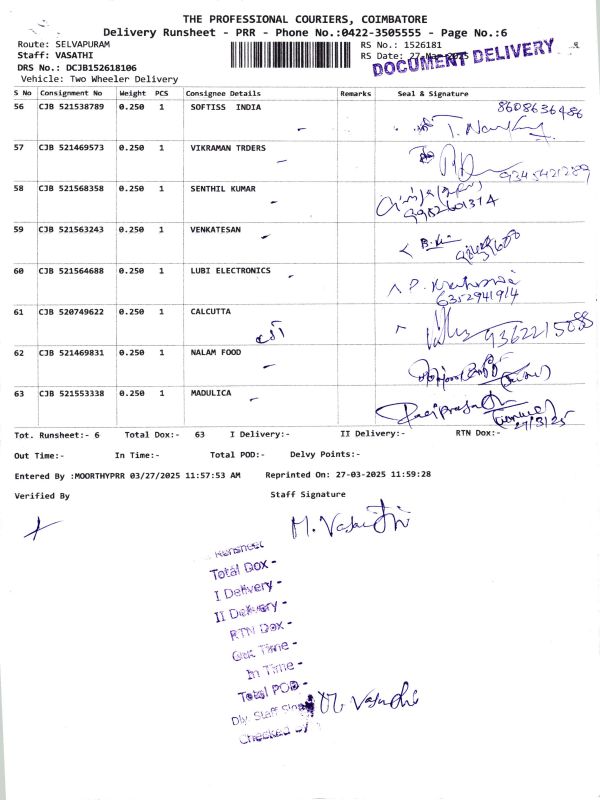 THE PROFESSIONAL COURIERS, COIMBATORE
Delivery Runsheet - PRR - Phone No.:0422-3505555 - Page No.:6
Route: SELVAPURAM RS No.: 1526181
Staff: VASATHI RS Date: 27-Mar-2025
DRS No.: DCJB152618106 DOCUMENT DELIVERY
Vehicle: Two Wheeler Delivery
S No Consignment No Weight PCS Consignee Details Remarks Seal & Signature
56 CJB 521538789 0.250 1 SOFTISS INDIA 8608636486
57 CJB 521469573 0.250 1 VIKRAMAN TRDERS 9345421289
58 CJB 521568358 0.250 1 SENTHIL KUMAR
59 CJB 521563243 0.250 1 VENKATESAN
60 CJB 521564688 0.250 1 LUBI ELECTRONICS
6352941914
61 CJB 520749622 0.250 1 CALCUTTA 9362215088
62 CJB 521469831 0.250 1 NALAM FOOD
63 CJB 521553338 0.250 1 MADULICA
27/3/25
Tot. Runsheet:- 6 Total Dox:- 63 I Delivery:- II Delivery:- RTN Dox:-
Out Time:- In Time:- Total POD:- Delvy Points:-
Entered By :MOORTHYPRR 03/27/2025 11:57:53 AM Reprinted On: 27-03-2025 11:59:28
Verified By Staff Signature
M. Vasathi
Runsheet
Total Dox -
I Delivery -
II Delivery -
RTN Dox -
Out Time -
In Time -
Total POD -
Dly. Staff Sign M. Vasathi
Checked By